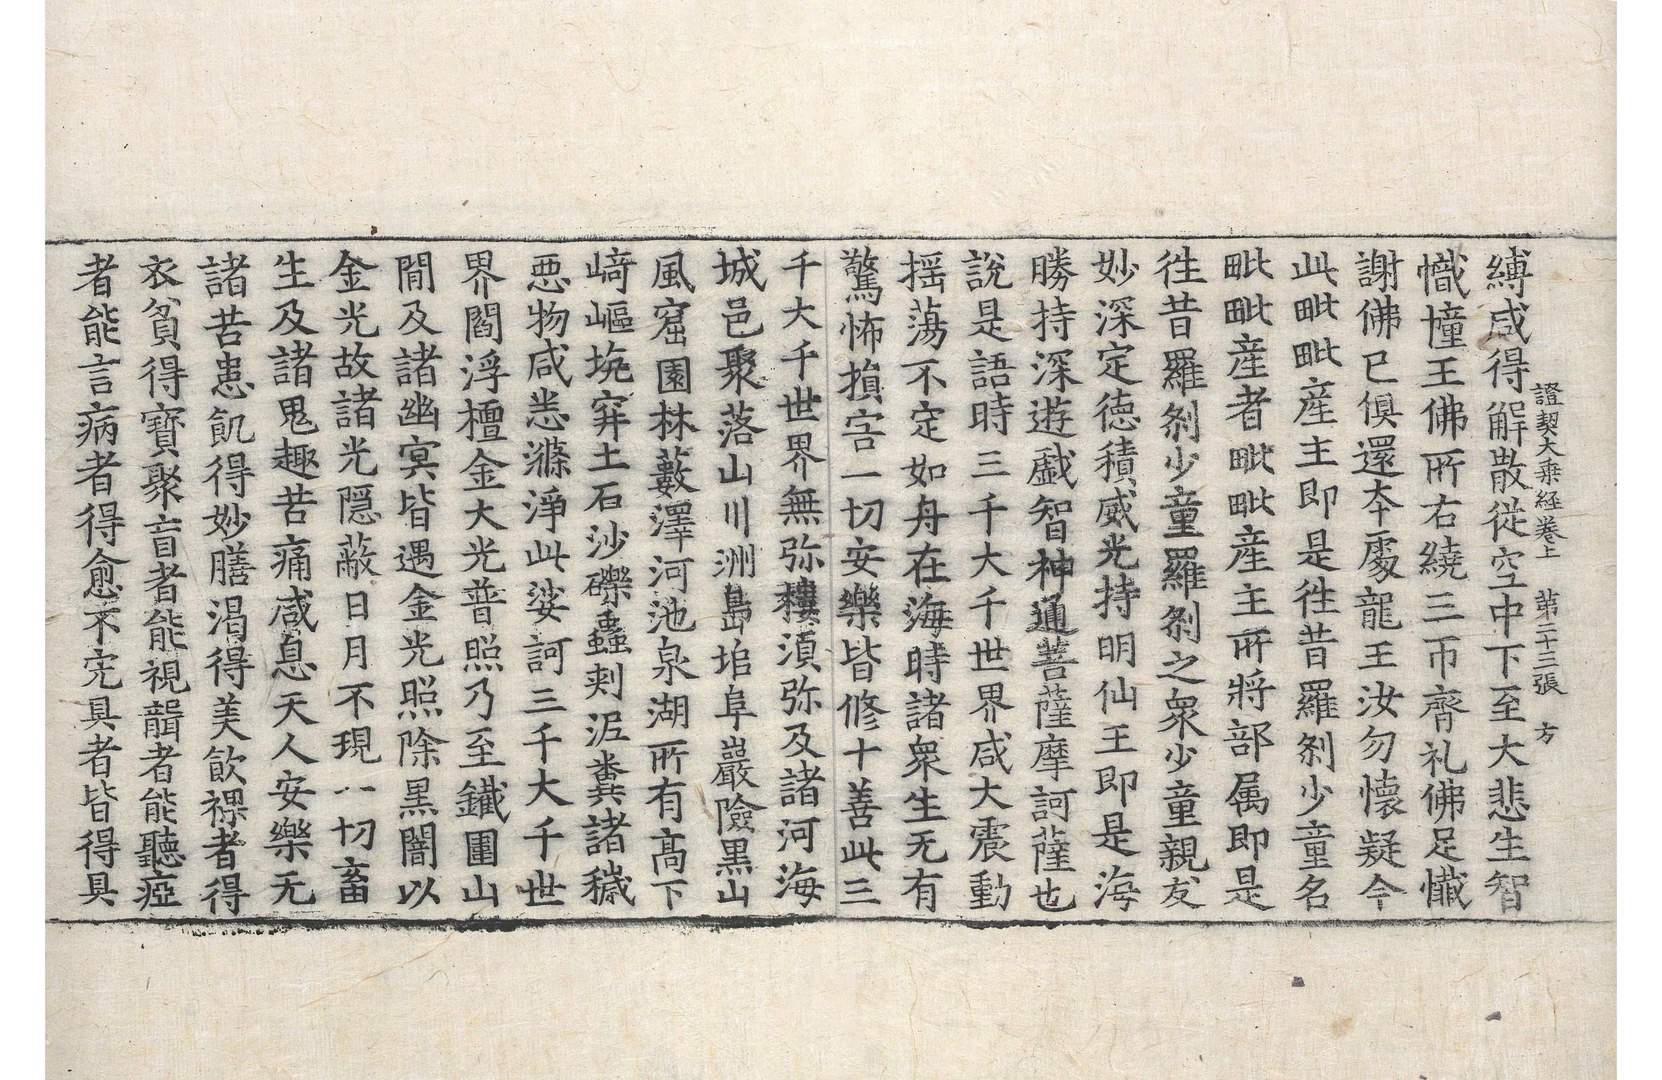 證契大乘経卷上 第二十三張 方
縛咸得解散從空中下至大悲生智
幟憧王佛所右繞三帀齊礼佛足懴
謝佛已俱還本處龍王汝勿懐疑今
此毗毗産主即是徃昔羅刹少童名
毗毗産者毗毗産主所將部属即是
徃昔羅刹少童羅刹之衆少童親友
妙深定徳積威光持明仙王即是海
勝持深遊戲智神通菩薩摩訶薩也
說是語時三千大千世界咸大震動
揺蕩不定如舟在海時諸衆生无有
驚怖損害一切安樂皆修十善此三
千大千世界無弥樓湏弥及諸河海
城邑聚落山川洲島埠阜巖險黒山
風窟園林藪澤河池泉湖所有髙下
﨑嶇坑穽土石沙礫蟲刾泥糞諸穢
惡物咸悉滌淨此娑訶三千大千世
界閻浮檀金大光普照乃至鐵圍山
間及諸幽㝠皆遇金光照除黒闇以
金光故諸光隠蔽日月不現一切畜
生及諸鬼趣苦痛咸息天人安樂无
諸苦患飢得妙膳渴得美飲裸者得
衣貧得寶聚盲者能視聾者能聽瘂
者能言病者得愈不完具者皆得具